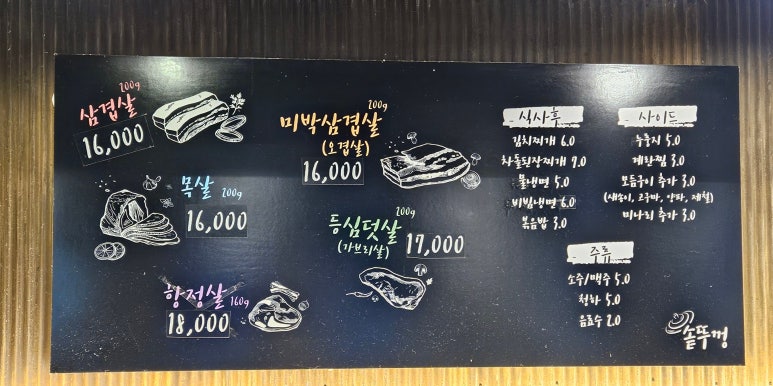 삼겹살 200g
16,000
목살 200g
16,000
항정살 160g
18,000
미박삼겹살 200g
(오겹살)
16,000
등심덧살 200g
(가브리살)
17,000
식사후
김치찌개 6.0
차돌된장찌개 7.0
물냉면 5.0
비빔냉면 6.0
볶음밥 3.0
사이드
누룽지 5.0
계란찜 3.0
모듬구이 추가 3.0
(새송이, 고구마, 양파, 제철)
미나리 추가 3.0
주류
소주/맥주 5.0
청하 5.0
음료수 2.0
솥뚜껑